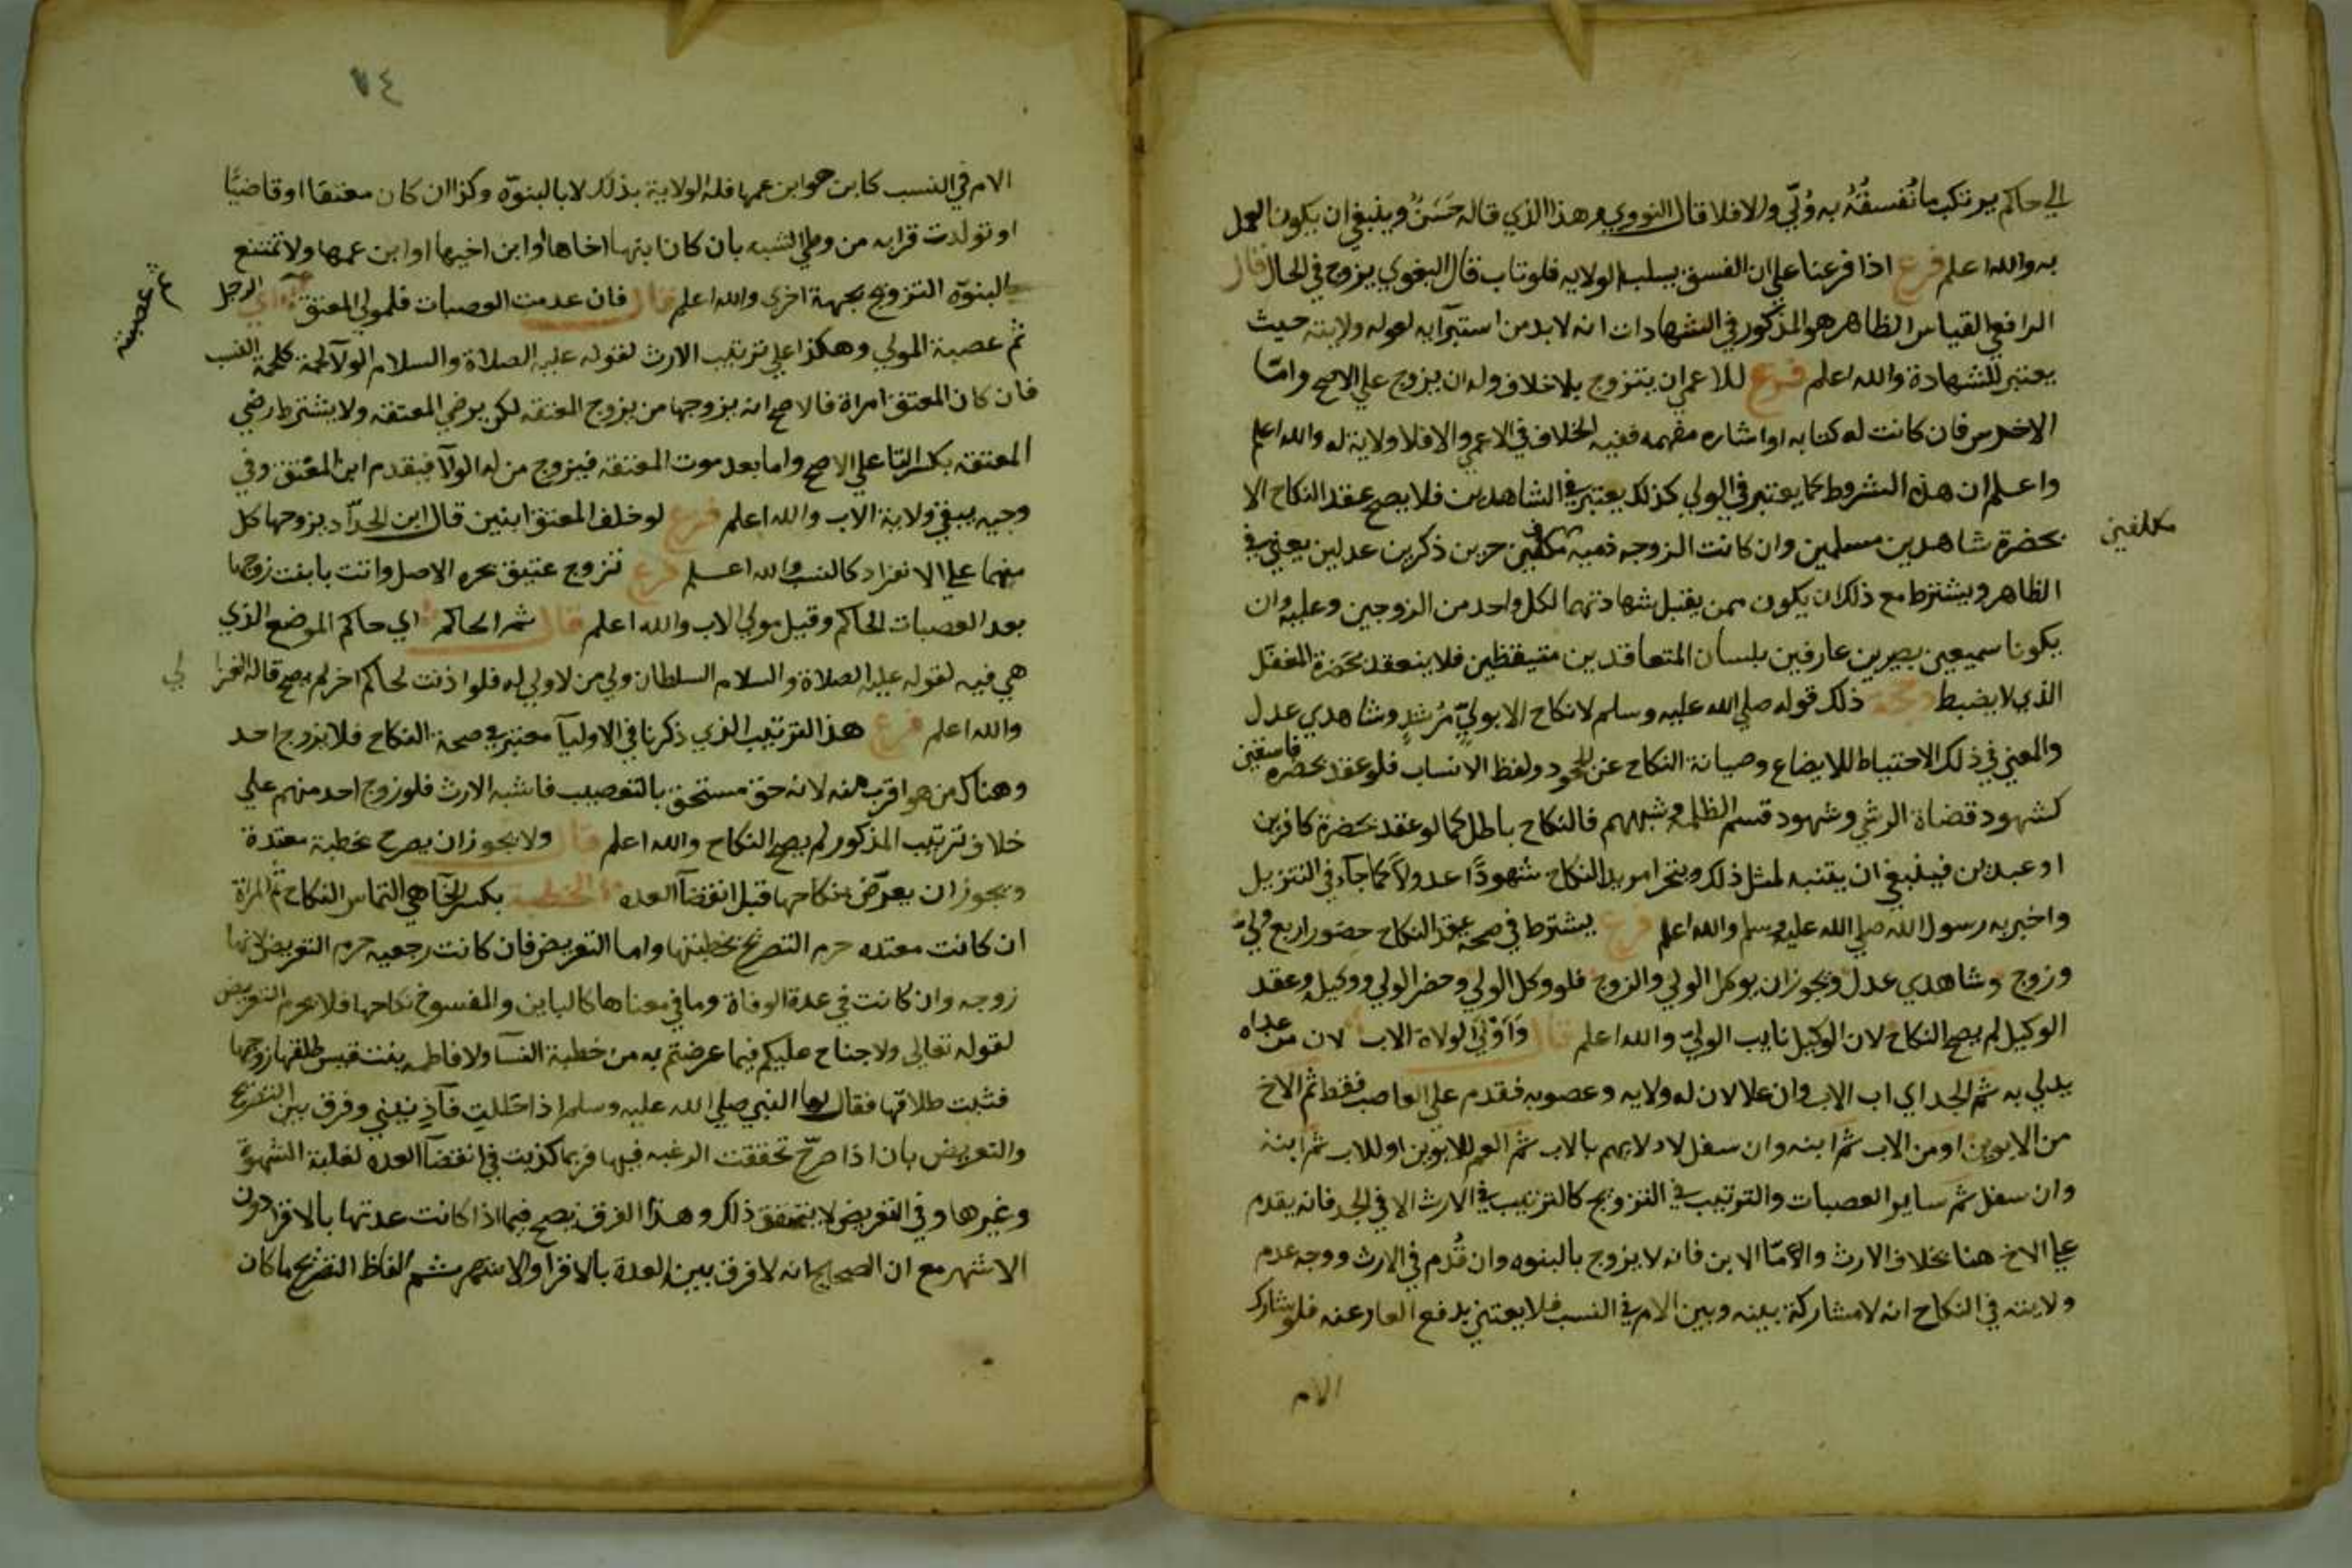 الي حاكم يرتكب ما نُفسقُهُ به وُلّي والا فلا قال النووي وهذا الذي قاله حَسَنٌ وينبغي ان يكون العمل
به والله اعلم فرع اذا فرعنا علي ان الفسق يسلب الولايه فلو تاب قال البغوي يزوج في الحال قال
الرافعي القياس الظاهر هو المذكور في الشهادات انه لا بد من استبرآيه لعوله ولايته حيث
يعتبر للشهادة والله اعلم فرع للاعمي ان يتزوج بلا خلاف وله ان يزوج علي الاصح وامّا
الاخرس فان كانت له كتابه او اشاره مفهمه ففيه الخلاف في الاعمي والا فلا ولاية له والله اعلم
واعلم ان هذه الشروط كما يعتبر في الولي كذلك يعتبر في الشاهدين فلا يصح عقد النكاح الا
بحضرة شاهدين مسلمين وان كانت الزوجه ذميه مكلفين حرين ذكرين عدلين يعني في
مكلفين
الظاهر ويشترط مع ذلك ان يكون ممن يقبل شهادتهما لكل واحد من الزوجين وعليه وان
يكونا سميعين بصيرين عارفين بلسان المتعاقدين متيقظين فلا ينعقد بحضرة المغفل
الذي لا يضبط وحجة ذلك قوله صلي الله عليه وسلم لا نكاح الا بوليّ مُرشدٍ وشاهدي عدل
والمعني في ذلك الاحتياط للابضاع وصيانة النكاح عن الجحود ولفظ الانساب فلو عقد بحضره فاسقين
كشهود قضاة الرشي وشهود قسم الظلمه وشبههم فالنكاح باطل كما لو عقد بحضرة كافرين
او عبدين فينبغي ان يتنبه لمثل ذلك ويتحرا مريد النكاح شهودًا عدولاً كما جآء في التنزيل
واخبر به رسول الله صلي الله عليه وسلم والله اعلم فرع يشترط في صحة عقد النكاح حضور اربع ولي
وزوج وشاهدي عدل ويجوز ان يوكل الولي والزوج فلو وكل الولي وحضر الولي ووكيله وعقد
الوكيل لم يصح النكاح لان الوكيل نايب الوليّ والله اعلم قال وَاَوْلَي الولاة الاب لان من عداه
يدلي به ثم الجد اي اب الاب وان علا لان له ولايه وعصوبه فقدم علي العاصب فقط ثم الاخ
من الابوين او من الاب ثم ابنه وان سفل لادلايهم بالاب ثم العم للابوين او للاب ثم ابنه
وان سفل ثم ساير العصبات والترتيب في التزويج كالترتيب في الارث الا في الجد فانه يقدم
علي الاخ هنا بخلاف الارث والا امّا الابن فانه لا يزوج بالبنوه وان قُدم في الارث ووجه عدم
ولايته في النكاح انه لا مشاركة بينه وبين الام في النسب فلا يعتني بدفع العار عنه فلو شارك
الام
٧٤
الام في النسب كابن هو ابن عمها فله الولاية بذلك لا بالبنوّه وكذا ان كان معتقا او قاضيًا
او تولدت قرابه من وطي الشبه بان كان ابنها اخاها او ابن اخيها او ابن عمها ولا تمتنع
البنوّه التزويج بجهة اخري والله اعلم قال فان عدمت العصبات فلمولي المعتق اي الرجل
ثم عصبته
ثم عصبة المولي وهكذا علي ترتيب الارث لقوله عليه الصلاة والسلام الولآ لحمة كلحمة النسب
فان كان المعتق امراة فالاصح انه يزوجها من يزوج المعتقه لكن يرضي المعتقه ولا يشترط رضي
المعتقه بكسر التا علي الاصح واما بعد موت المعتقه فيزوج من له الولآ فيقدم ابن المعتق وفي
وجيه يبقي ولاية الاب والله اعلم فرع لو خلف المعتق ابنين قال ابن الحدّآد يزوجها كل
منهما علي الانفراد كالنسب والله اعلم فرع تزوج عتيق بحره الاصل واتت بابنت زوجها
بعد العصبات الحاكم وقيل مولي الاب والله اعلم قال ثم الحاكم اي حاكم الموضع الذي
هي فيه لقوله عليه الصلاة والسلام السلطان ولي من لا ولي له فلو اذنت لحاكم اخر لم يصح قاله الغزا لي
والله اعلم فرع هذا الترتيب الذي ذكرنا في الاوليآ معتبر في صحة النكاح فلا يزوج احد
وهناك من هو اقرب منه لانه حق مستحق بالتعصيب فاشبه الارث فلو زوج احد منهم علي
خلاف ترتيب المذكور لم يصح النكاح والله اعلم قال ولا يجوز ان يصرح بخطبة معتدة
ويجوز ان يعرّض بنكاحها قبل انقضآ العده الخطبة بكسر الخآ هي التماس النكاح ثم المراة
ان كانت معتده حرم التصريح بخطبتها واما التعريض فان كانت رجعيه حرم التعريض لانها
زوجه وان كانت في عدة الوفاة وما في معناها كالباين والمفسوخ نكاحها فلا يحرم التعريض
لقوله تعالي ولا جناح عليكم فيما عرضتم به من خطبة النسآ ولا فاطمه بنت قيس طلقها زوجها
فثبت طلاقها فقال لها النبي صلي الله عليه وسلم اذا حَللتِ فآذنيني وفرق بين التصريح
والتعريض بان اذا صرّح تحققت الرغبه فيها فربما كذبت في انقضآ العده لغلبة الشهوة
وغيرها وفي التعريض لا يتحقق ذلك وهذا الفرق يصح فيما اذا كانت عدتها بالاقرا دون
الاشهر مع ان الصحيح انه لا فرق بين العدة بالاقرا والاشهر ثم الفاظ التصريح ما كان